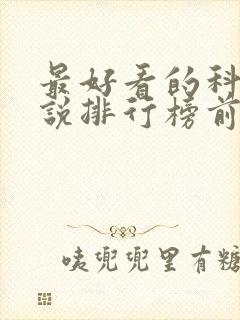 最好看的科
說排行榜前
咦兜兜里有糖